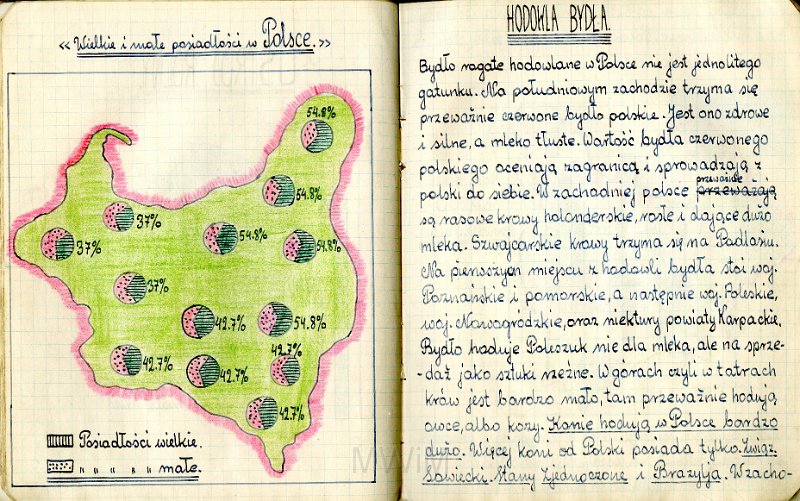 << Wielkie i małe posiadłości w Polsce. >>
54.8%
54.8%
37%
54.8%
54.8%
37%
37%
42.7%
54.8%
42.7%
42.7%
42.7%
42.7%
Posiadłości wielkie.
" " " " małe.
HODOWLA BYDŁA.
Bydło rogate hodowlane w Polsce nie jest jednolitego
gatunku. Na południowym zachodzie trzyma się
przeważnie czerwone bydło polskie. Jest ono zdrowe
i silne, a mleko tłuste. Wartość bydła czerwonego
polskiego oceniają zagranicą i sprowadzają z
przeważnie
polski do siebie. W zachodniej polsce przeważają
są rasowe krowy holenderskie, rosłe i dające dużo
mleka. Szwajcarskie krowy trzyma się na Podlasiu.
Na pierwszym miejscu z hodowli bydła stoi woj.
Poznańskie i pomorskie, a następnie woj. Poleskie,
woj. Nowogródzkie, oraz niektury powiaty Karpackie,
Bydło hoduje Poleszuk nie dla mleka, ale na sprze-
-daż jako sztuki rzeźne. W górach czyli w tatrach
krów jest bardzo mało, tam przeważnie hodują
owce, albo kozy. Konie hodują w Polsce bardzo
dużo. Więcej koni od Polski posiada tylko. Zwiąż.
sowiecki. Stany Zjednoczone i Brazylja. W zacho-
MWiM